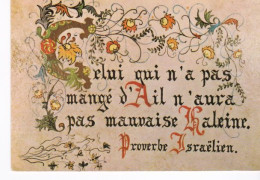 Celui qui n'a pas
mangé d'Ail n'aura
pas mauvaise Haleine.
Proverbe Israëlien.